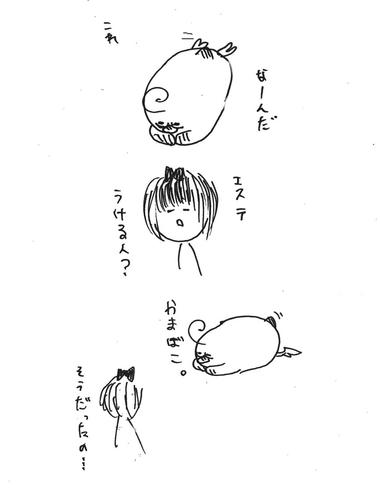 これ
なーんだ
エステ
うける人?
かまぼこ。
そうだったの…